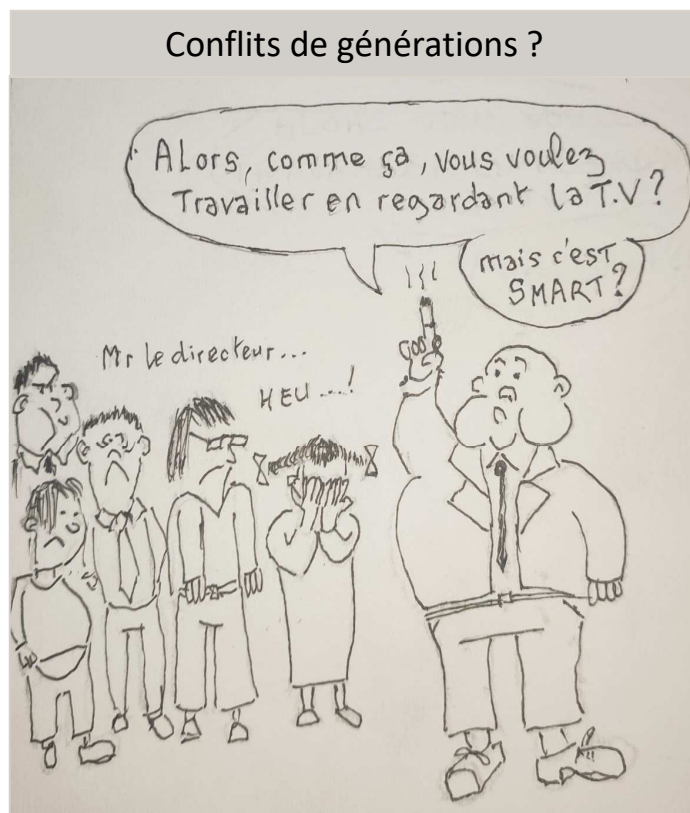 Conflits de générations ?
ALors, comme ça, vous voulez
Travailler en regardant la T.V ?
mais c'est
SMART ?
Mr le directeur...
HEU ...!